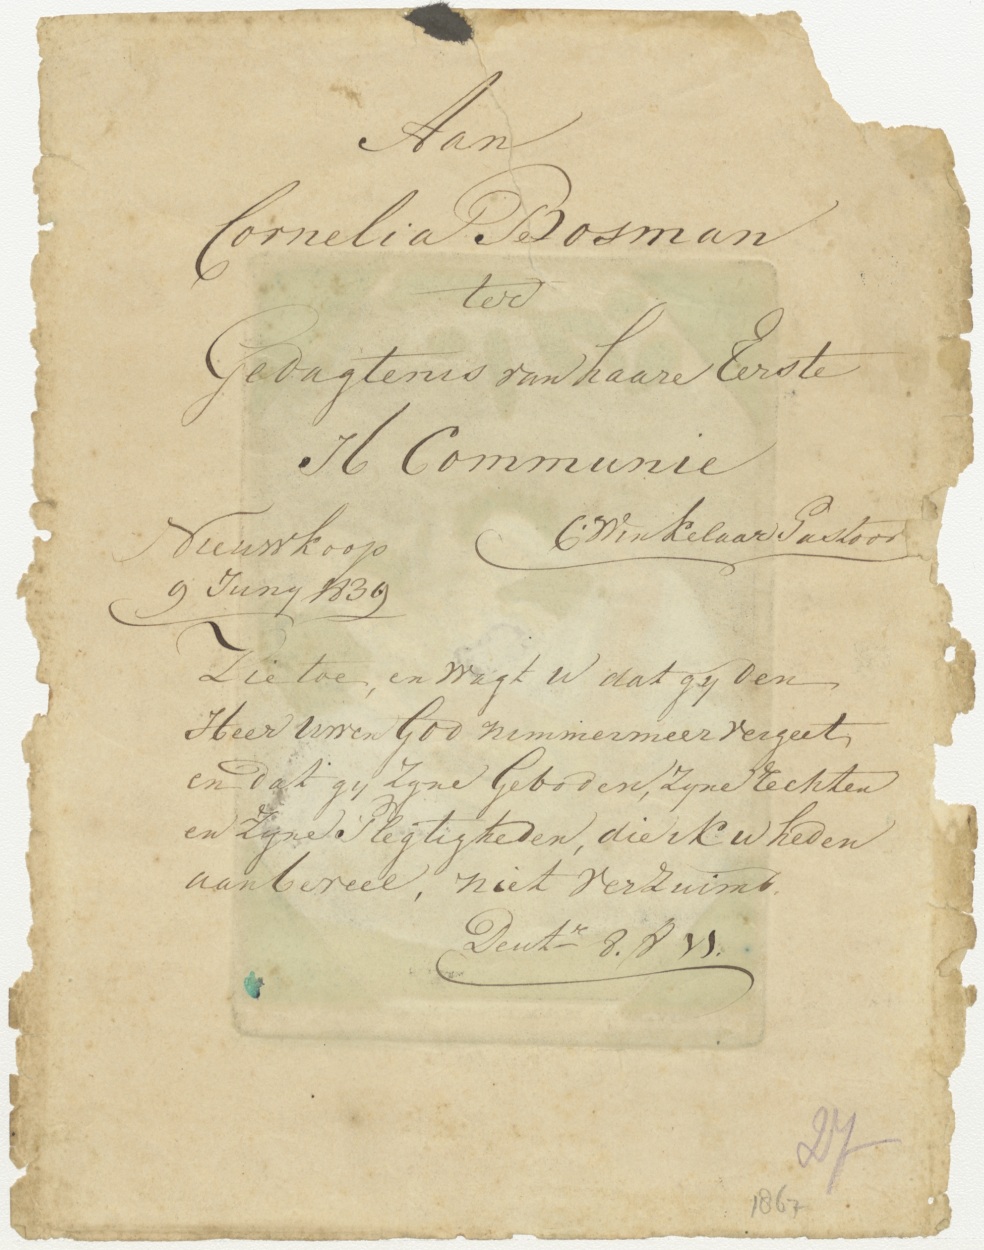 Aan
Cornelia Bosman
ter
Gedagtenis van haare Eerste
H Communie
C Winkelaar Pastoor
Nieuwkoop
9 Juny 1839
Zie toe, en wagt U dat gy den
Heer Uwen God nimmermeer vergeet,
en dat gy Zyne Geboden, Zyne Rechten
en Zyne Plegtigheden, die ik U heden
aanbeveel, niet verzuimt.
Deutr 8. V 11.
27
1867